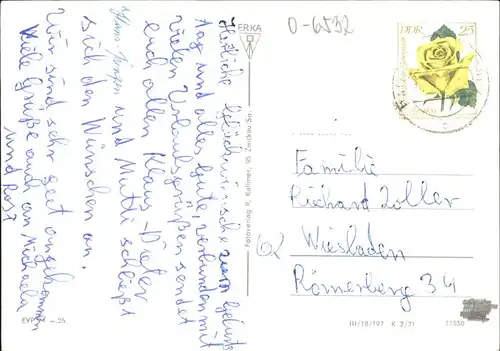 Herzliche Glückwünsche zum Geburts-
tag und alles Gute, verbunden mit
vielen Urlaubsgrüßen sendet
euch allen Klaus-Dieter
und Mutti schließt
sich den Wünschen an.
Wir sind sehr gut angekommen
Viele Grüße auch an Michaela
und
EVP
ERKA
Fotoverlag R. Kallmer, 95 Zwickau Sa.
0-6532
DDR 25
Familie
Richard Zoller
62 Wiesbaden
Römerberg 34
III/18/197 K 2/71 11550